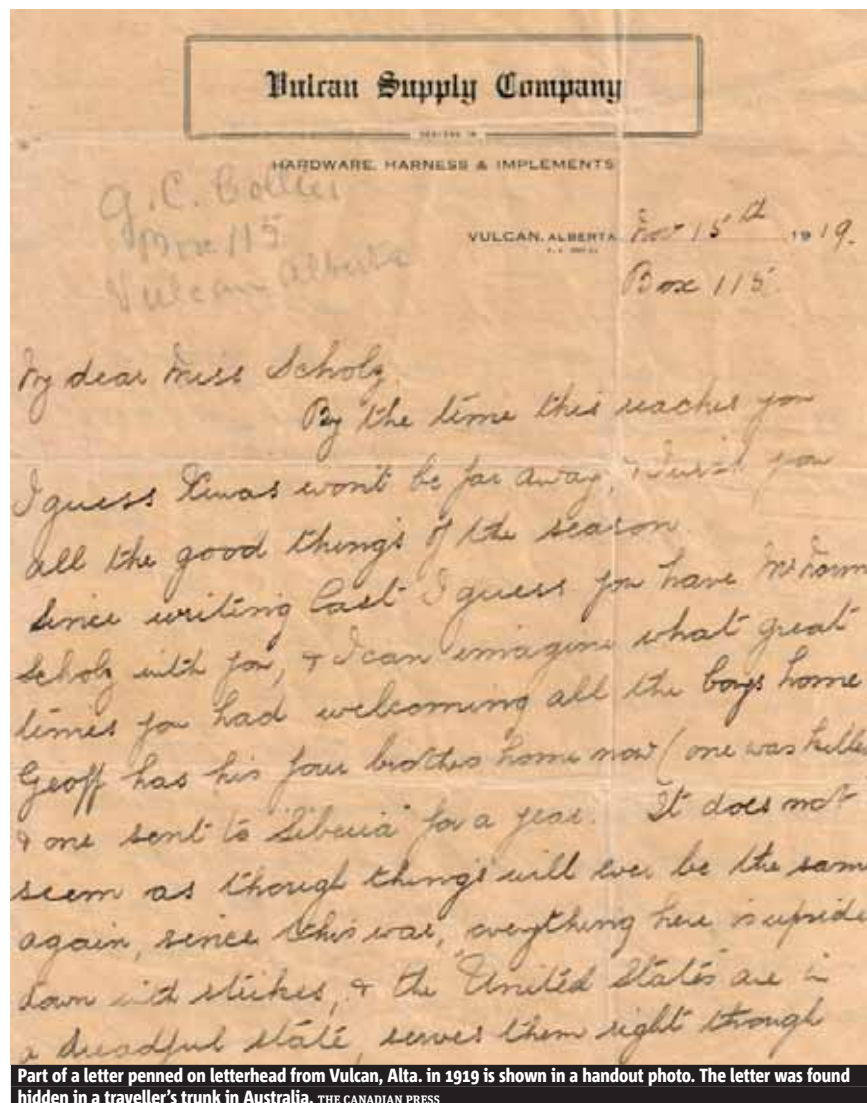 Vulcan Supply Company
DEALERS IN
HARDWARE, HARNESS & IMPLEMENTS
G. C. Collier
Box 115
Vulcan Alberta
VULCAN, ALBERTA Nov 15th 1919.
Box 115.
My dear Miss Scholz,
By the time this reaches you
I guess Xmas won't be far away, I wish you
all the good things of the season.
Since writing last I guess you have Mr
Scholz with you, & I can imagine what great
times you had welcoming all the boys home
Geoff has his four brothers home now (one was kille
& one sent to "Siberia" for a year. It does not
seem as though things will ever be the sam
again, since this war, everything here is upside
down with strikes, & the United States are in
a dreadful state, serves them right though
Part of a letter penned on letterhead from Vulcan, Alta. in 1919 is shown in a handout photo. The letter was found
hidden in a traveller's trunk in Australia. THE CANADIAN PRESS